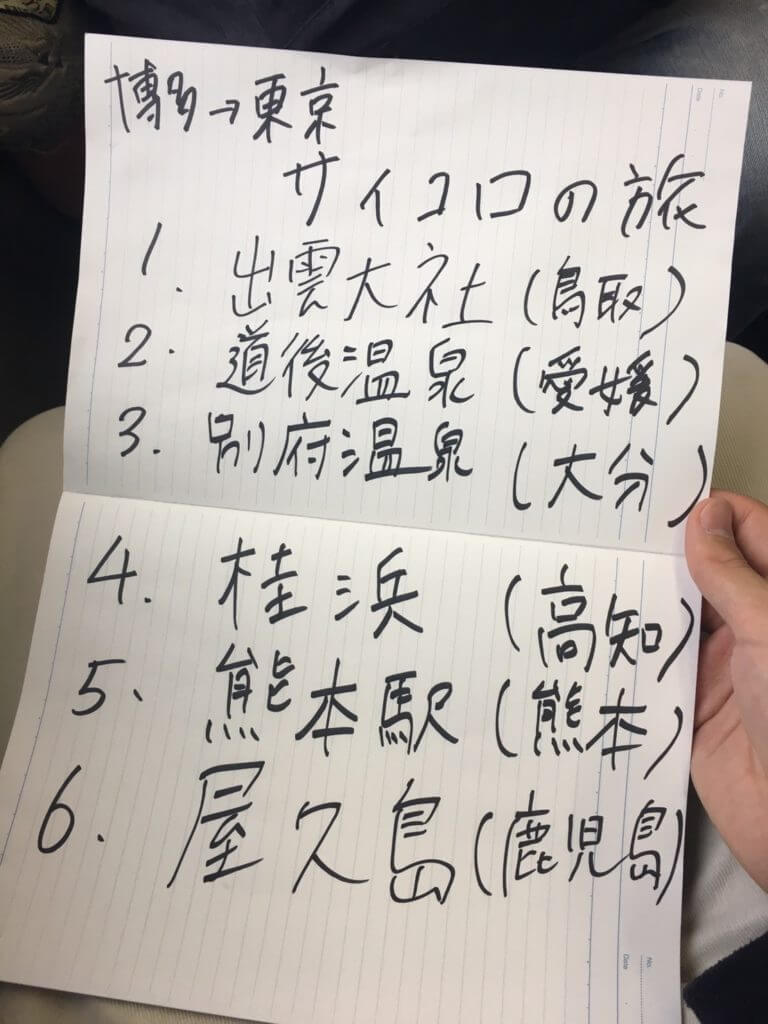 No.
Date
博多→東京
サイコロの旅
1. 出雲大社(鳥取)
2. 道後温泉(愛媛)
3. 別府温泉(大分)
4. 桂浜(高知)
5、熊本駅(熊本)
6. 屋久島(鹿児島)
No.
Date